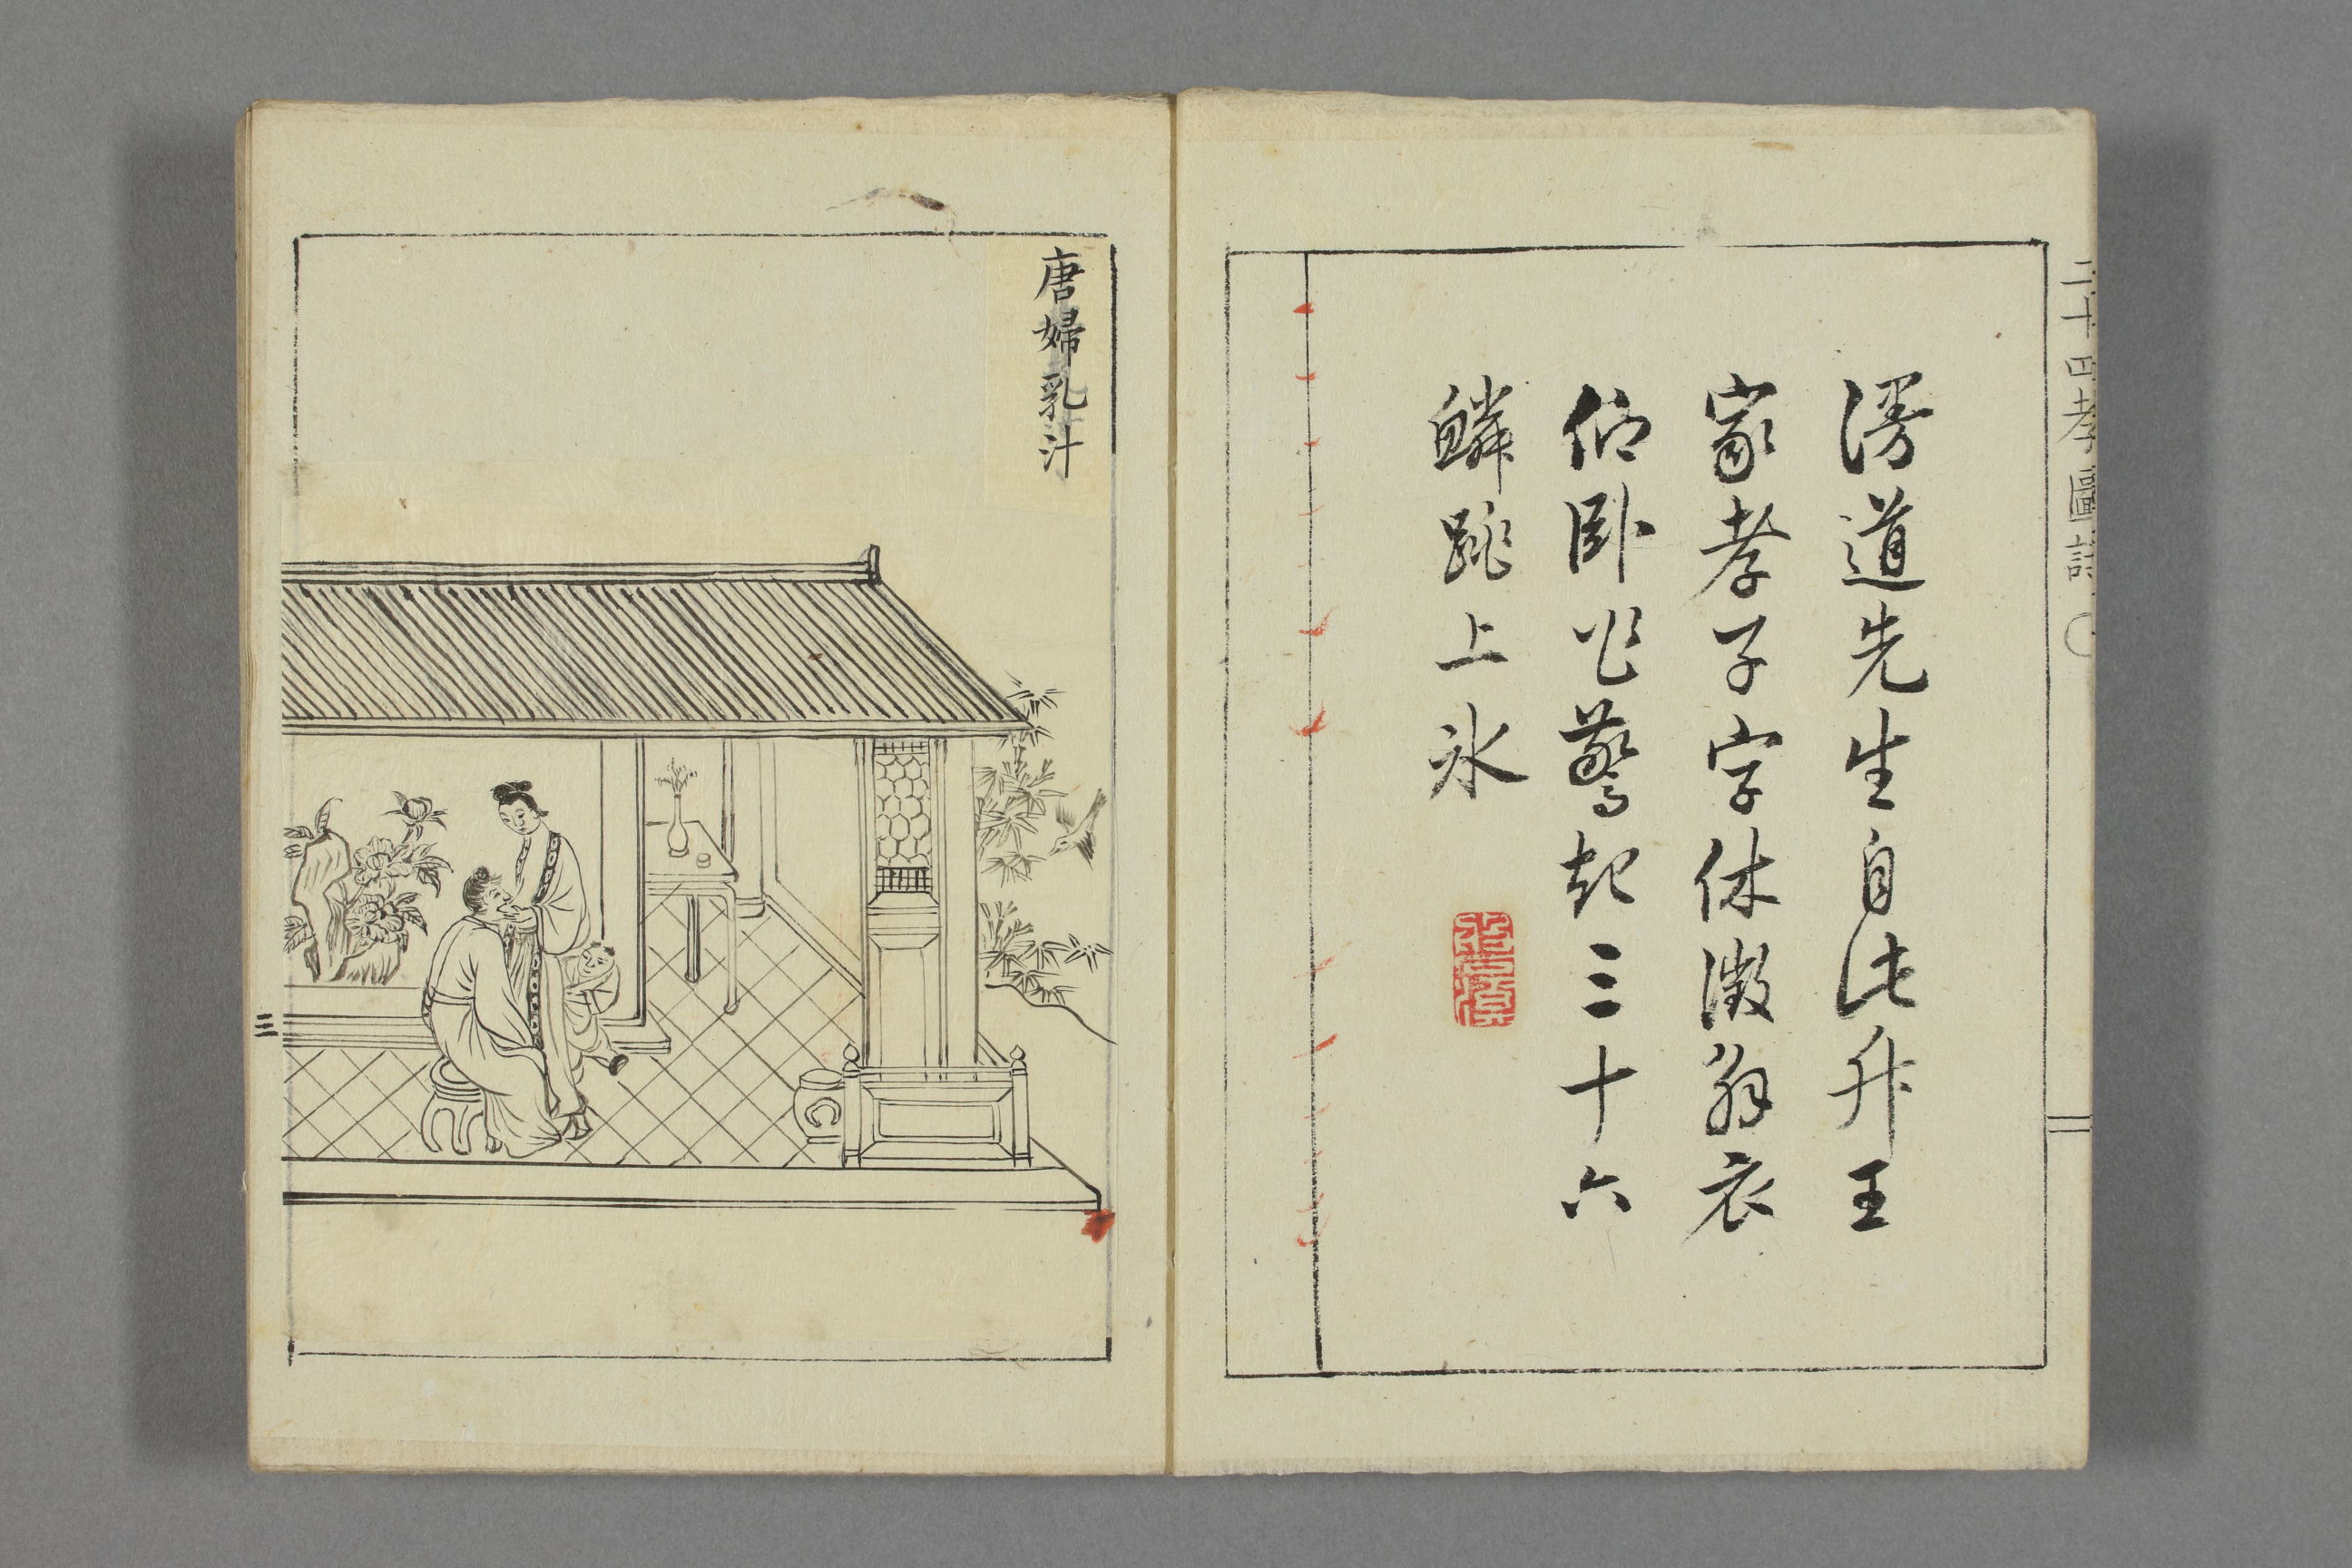 二十四孝圖詩
漫道先生自此升王
家孝子字休徵解衣
仰臥驚起三十六
鱗跳上氷
唐婦乳汁
三